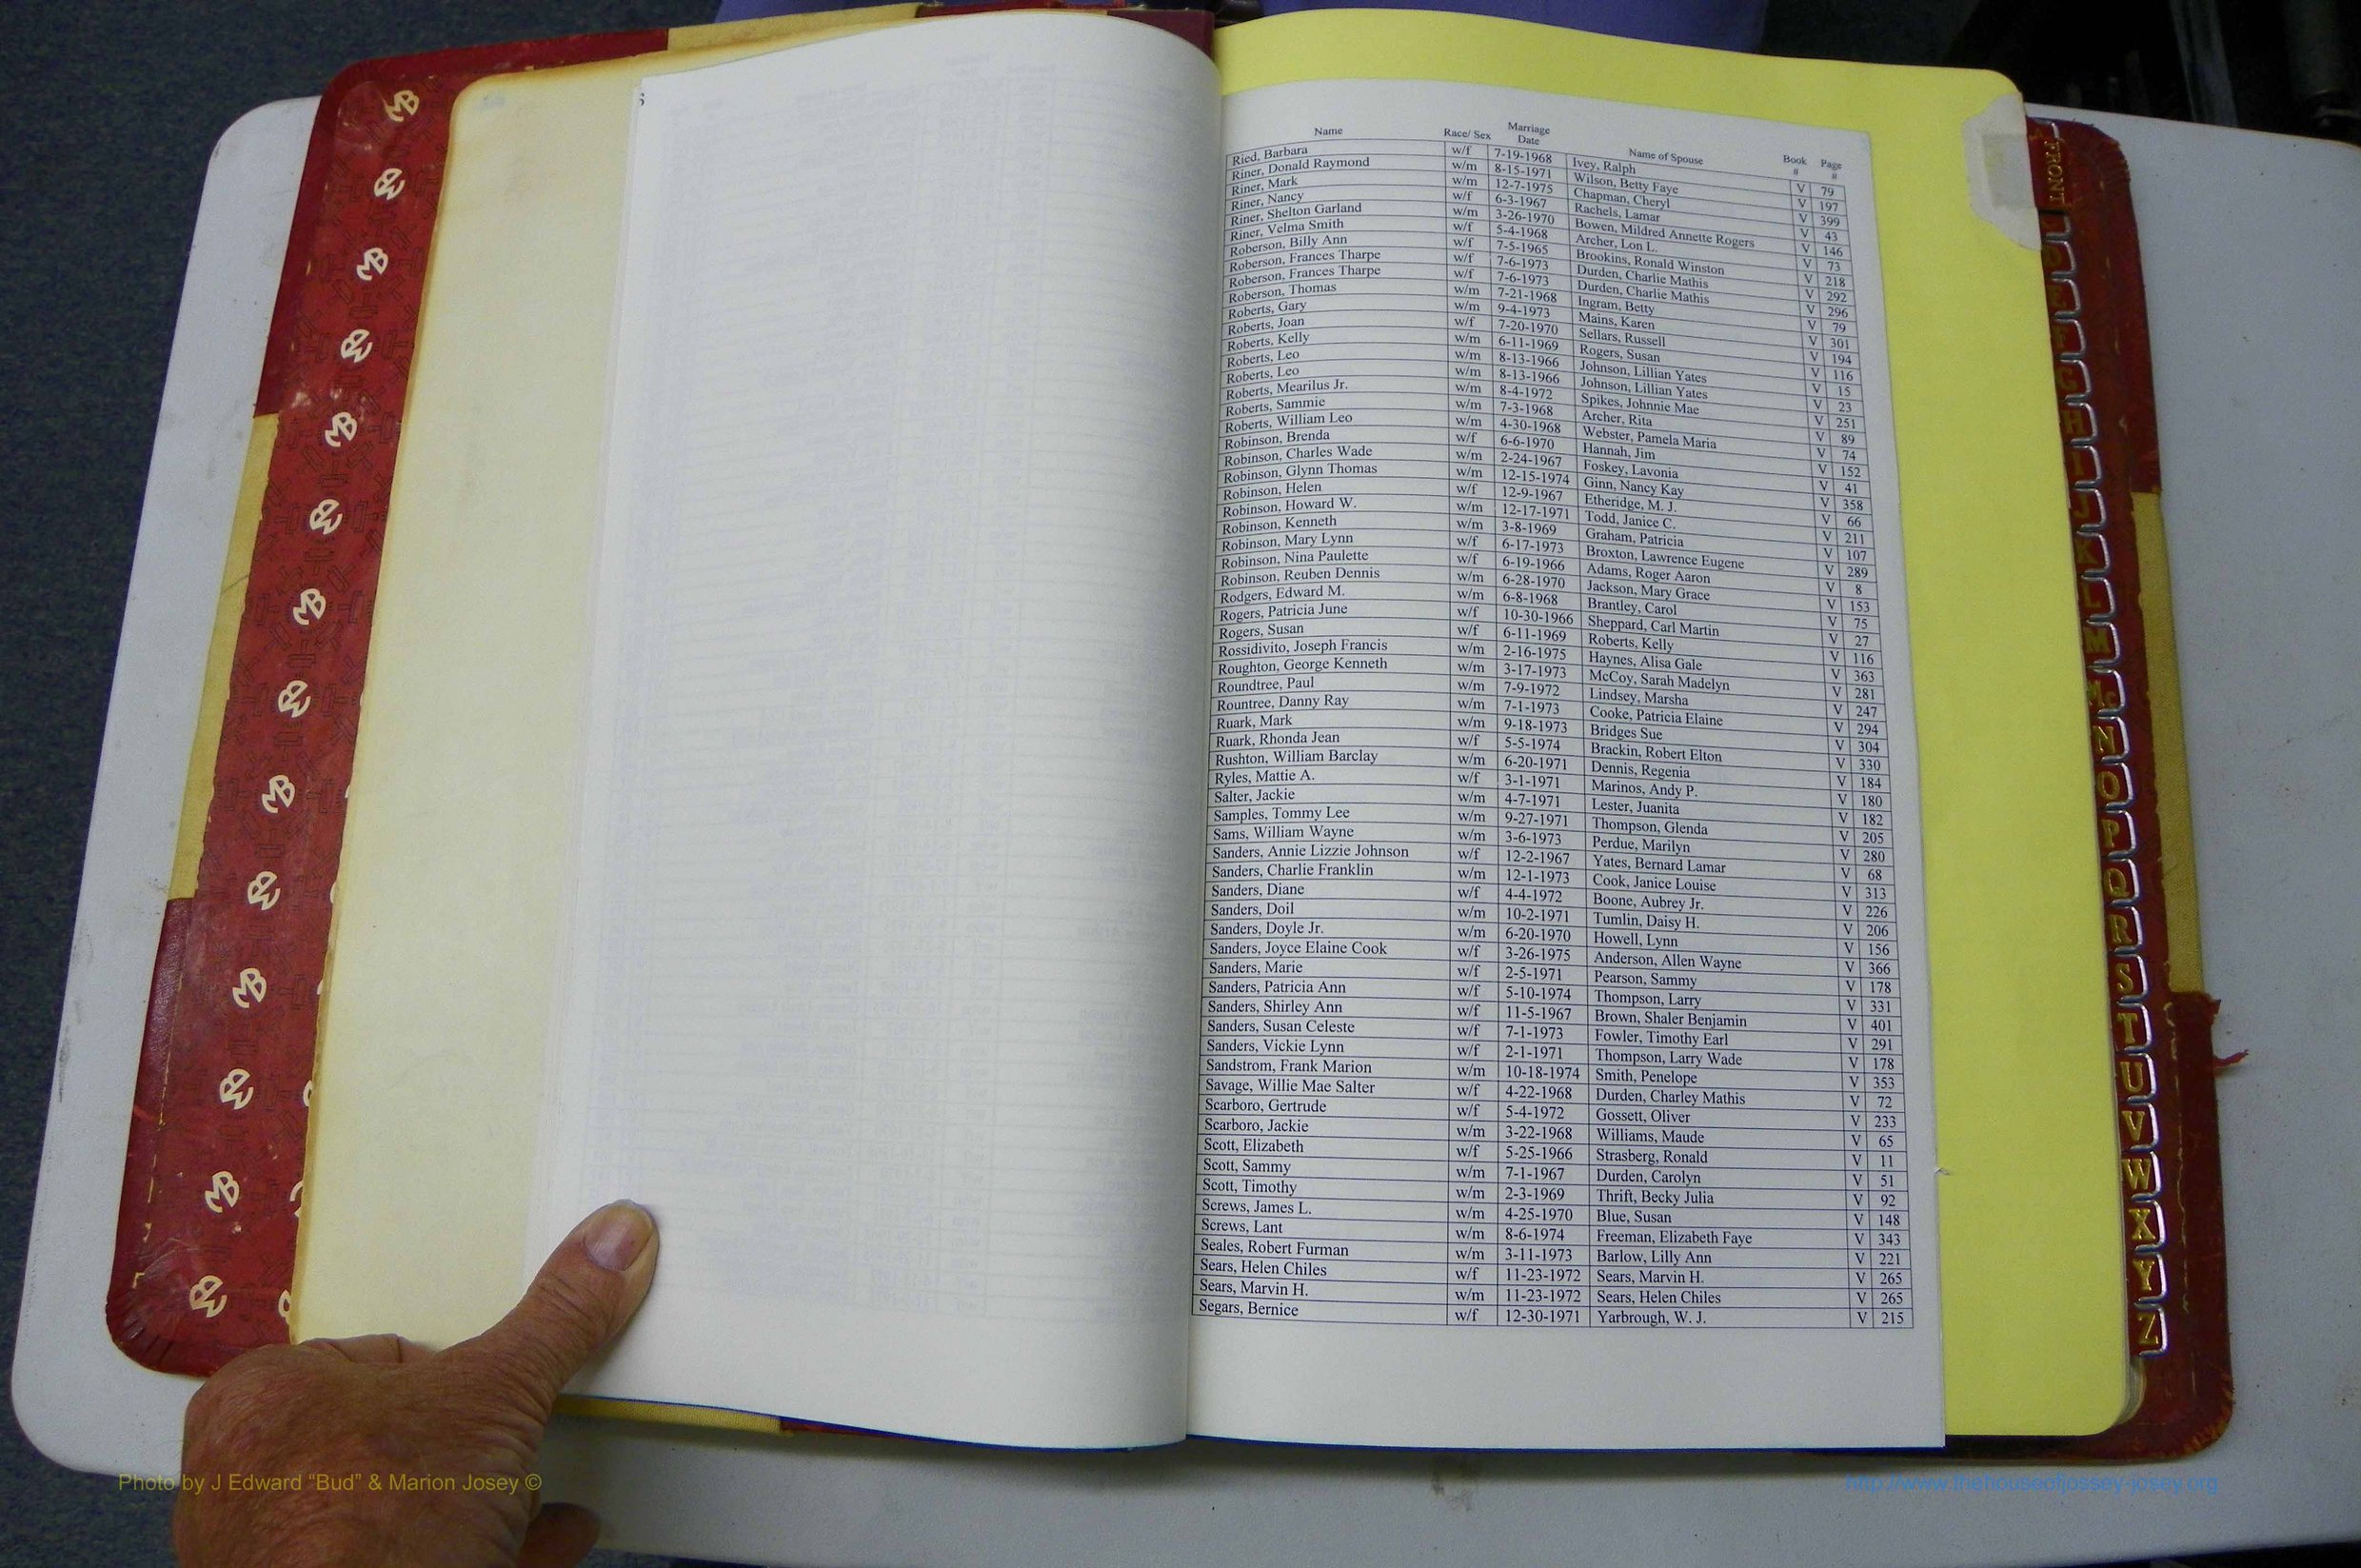 Name Race/ Sex Marriage Date Name of Spouse Book # Page #
Ried, Barbara w/f 7-19-1968 Ivey, Ralph V 79
Riner, Donald Raymond w/m 8-15-1971 Wilson, Betty Faye V 197
Riner, Mark w/m 12-7-1975 Chapman, Cheryl V 399
Riner, Nancy w/f 6-3-1967 Rachels, Lamar V 43
Riner, Shelton Garland w/m 3-26-1970 Bowen, Mildred Annette Rogers V 146
Riner, Velma Smith w/f 5-4-1968 Archer, Lon L. V 73
Roberson, Billy Ann w/f 7-5-1965 Brookins, Ronald Winston V 218
Roberson, Frances Tharpe w/f 7-6-1973 Durden, Charlie Mathis V 292
Roberson, Frances Tharpe w/f 7-6-1973 Durden, Charlie Mathis V 296
Roberson, Thomas w/m 7-21-1968 Ingram, Betty V 79
Roberts, Gary w/m 9-4-1973 Mains, Karen V 301
Roberts, Joan w/f 7-20-1970 Sellars, Russell V 194
Roberts, Kelly w/m 6-11-1969 Rogers, Susan V 116
Roberts, Leo w/m 8-13-1966 Johnson, Lillian Yates V 15
Roberts, Leo w/m 8-13-1966 Johnson, Lillian Yates V 23
Roberts, Mearilus Jr. w/m 8-4-1972 Spikes, Johnnie Mae V 251
Roberts, Sammie w/m 7-3-1968 Archer, Rita V 89
Roberts, William Leo w/m 4-30-1968 Webster, Pamela Maria V 74
Robinson, Brenda w/f 6-6-1970 Hannah, Jim V 152
Robinson, Charles Wade w/m 2-24-1967 Foskey, Lavonia V 41
Robinson, Glynn Thomas w/m 12-15-1974 Ginn, Nancy Kay V 358
Robinson, Helen w/f 12-9-1967 Etheridge, M. J. V 66
Robinson, Howard W. w/m 12-17-1971 Todd, Janice C. V 211
Robinson, Kenneth w/m 3-8-1969 Graham, Patricia V 107
Robinson, Mary Lynn w/f 6-17-1973 Broxton, Lawrence Eugene V 289
Robinson, Nina Paulette w/f 6-19-1966 Adams, Roger Aaron V 8
Robinson, Reuben Dennis w/m 6-28-1970 Jackson, Mary Grace V 153
Rodgers, Edward M. w/m 6-8-1968 Brantley, Carol V 75
Rogers, Patricia June w/f 10-30-1966 Sheppard, Carl Martin V 27
Rogers, Susan w/f 6-11-1969 Roberts, Kelly V 116
Rossidivito, Joseph Francis w/m 2-16-1975 Haynes, Alisa Gale V 363
Roughton, George Kenneth w/m 3-17-1973 McCoy, Sarah Madelyn V 281
Roundtree, Paul w/m 7-9-1972 Lindsey, Marsha V 247
Rountree, Danny Ray w/m 7-1-1973 Cooke, Patricia Elaine V 294
Ruark, Mark w/m 9-18-1973 Bridges Sue V 304
Ruark, Rhonda Jean w/f 5-5-1974 Brackin, Robert Elton V 330
Rushton, William Barclay w/m 6-20-1971 Dennis, Regenia V 184
Ryles, Mattie A. w/f 3-1-1971 Marinos, Andy P. V 180
Salter, Jackie w/m 4-7-1971 Lester, Juanita V 182
Samples, Tommy Lee w/m 9-27-1971 Thompson, Glenda V 205
Sams, William Wayne w/m 3-6-1973 Perdue, Marilyn V 280
Sanders, Annie Lizzie Johnson w/f 12-2-1967 Yates, Bernard Lamar V 68
Sanders, Charlie Franklin w/m 12-1-1973 Cook, Janice Louise V 313
Sanders, Diane w/f 4-4-1972 Boone, Aubrey Jr. V 226
Sanders, Doil w/m 10-2-1971 Tumlin, Daisy H. V 206
Sanders, Doyle Jr. w/m 6-20-1970 Howell, Lynn V 156
Sanders, Joyce Elaine Cook w/f 3-26-1975 Anderson, Allen Wayne V 366
Sanders, Marie w/f 2-5-1971 Pearson, Sammy V 178
Sanders, Patricia Ann w/f 5-10-1974 Thompson, Larry V 331
Sanders, Shirley Ann w/f 11-5-1967 Brown, Shaler Benjamin V 401
Sanders, Susan Celeste w/f 7-1-1973 Fowler, Timothy Earl V 291
Sanders, Vickie Lynn w/f 2-1-1971 Thompson, Larry Wade V 178
Sandstrom, Frank Marion w/m 10-18-1974 Smith, Penelope V 353
Savage, Willie Mae Salter w/f 4-22-1968 Durden, Charley Mathis V 72
Scarboro, Gertrude w/f 5-4-1972 Gossett, Oliver V 233
Scarboro, Jackie w/m 3-22-1968 Williams, Maude V 65
Scott, Elizabeth w/f 5-25-1966 Strasberg, Ronald V 11
Scott, Sammy w/m 7-1-1967 Durden, Carolyn V 51
Scott, Timothy w/m 2-3-1969 Thrift, Becky Julia V 92
Screws, James L. w/m 4-25-1970 Blue, Susan V 148
Screws, Lant w/m 8-6-1974 Freeman, Elizabeth Faye V 343
Seales, Robert Furman w/m 3-11-1973 Barlow, Lilly Ann V 221
Sears, Helen Chiles w/f 11-23-1972 Sears, Marvin H. V 265
Sears, Marvin H. w/m 11-23-1972 Sears, Helen Chiles V 265
Segars, Bernice w/f 12-30-1971 Yarbrough, W. J. V 215
FRONT
H
I
J
K
L
M
Mc
N
O
P
Q
R
S
T
U
V
W
X
Y
Z
Photo by J Edward “Bud” & Marion Josey ©
http://www.thehouseofjossey-josey.org